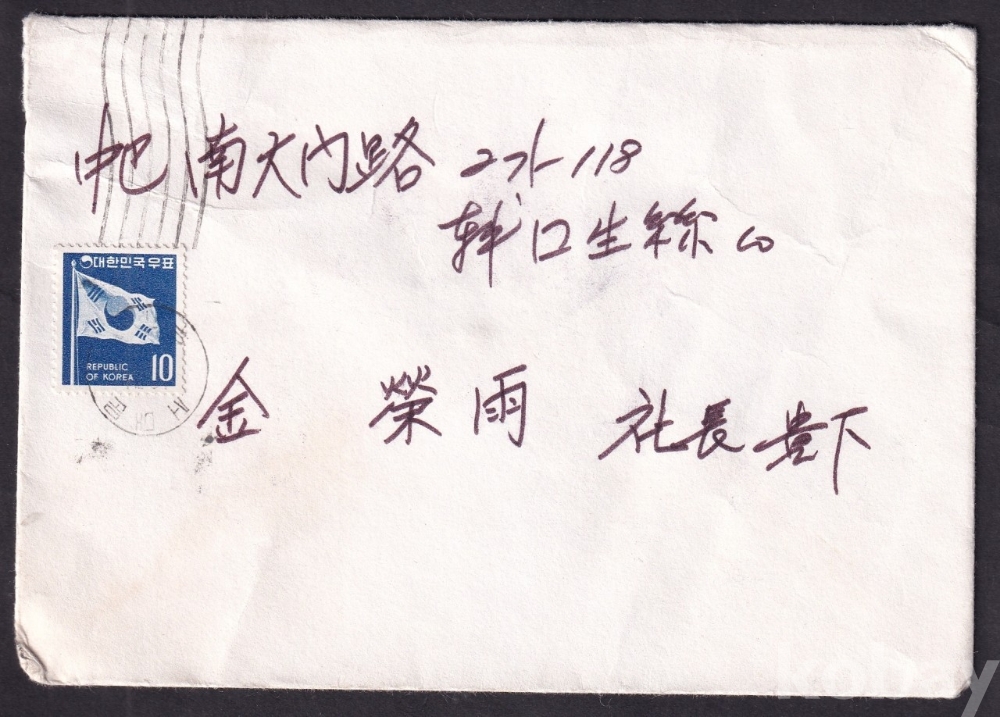 中区 南大门路 2가 118
韓囗生絲 公
대한민국우표
REPUBLIC
OF KOREA
10
金 榮雨 社長 貴下
kobay